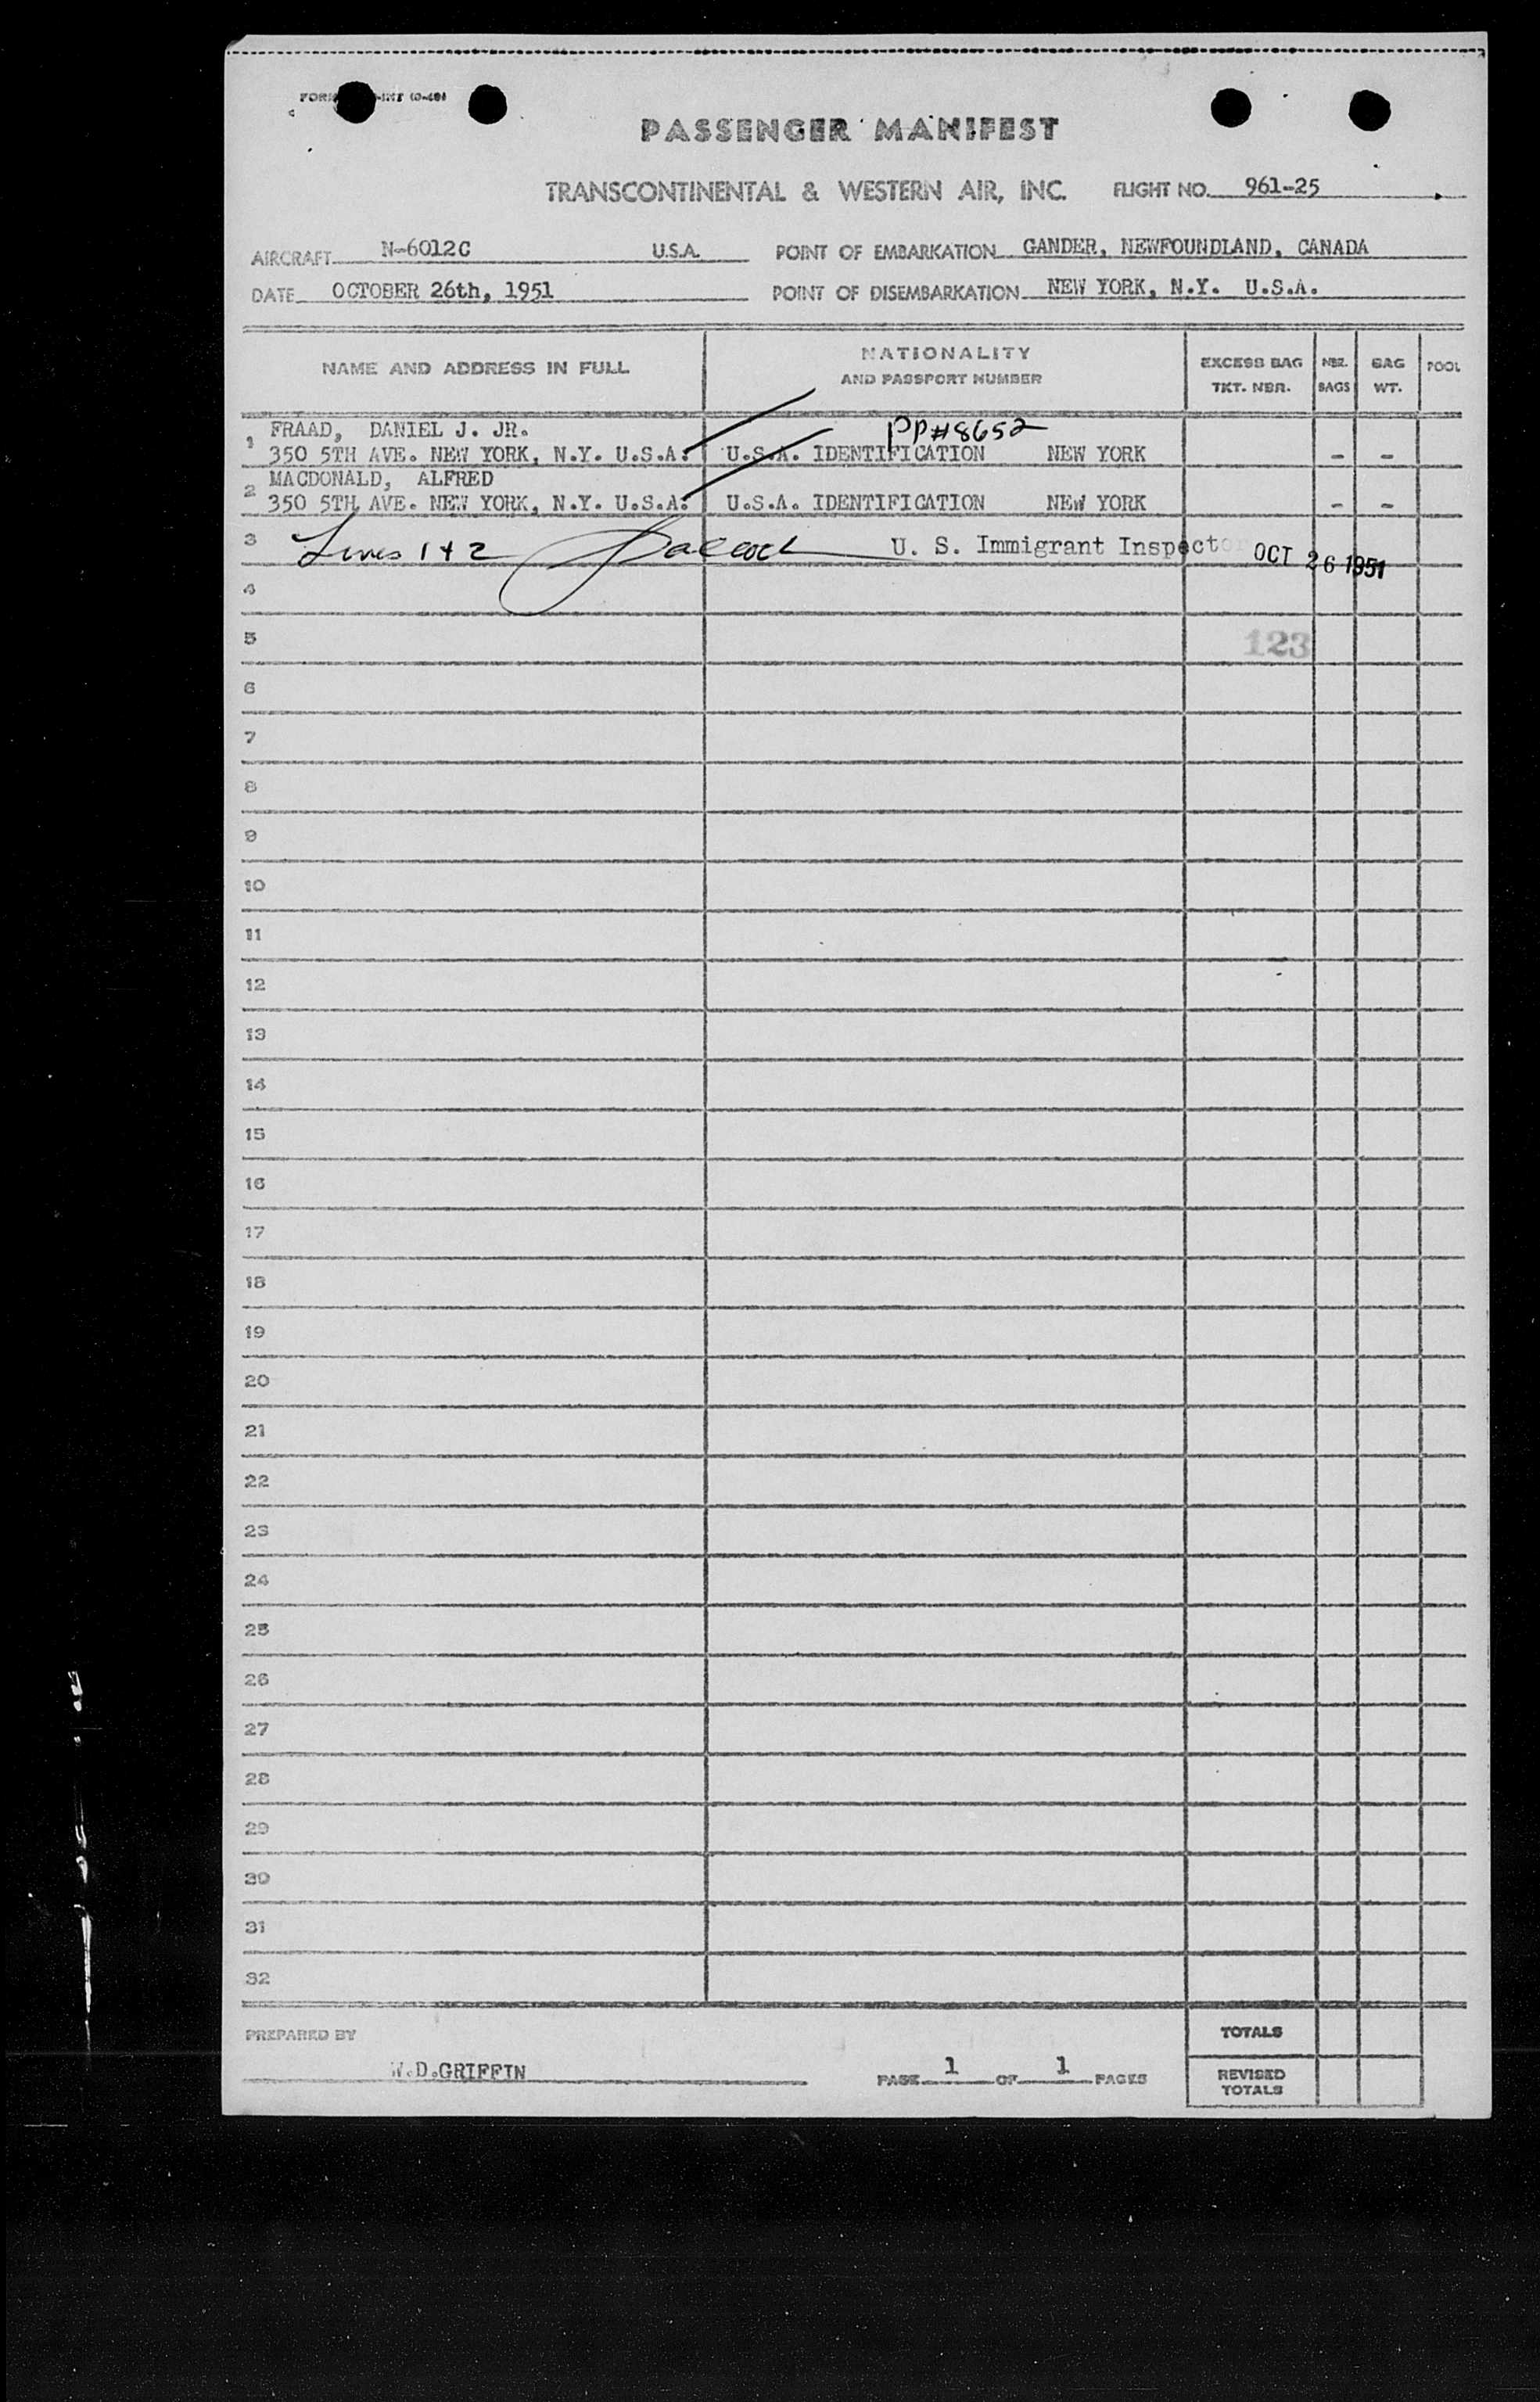 PASSENGER MANIFEST
TRANSCONTINENTAL & WESTERN AIR, INC. FLIGHT NO. 961-25
AIRCRAFT N-6012C U.S.A. POINT OF EMBARKATION GANDER, NEWFOUNDLAND, CANADA
DATE OCTOBER 26th, 1951 POINT OF DISEMBARKATION NEW YORK, N.Y. U.S.A.
NAME AND ADDRESS IN FULL NATIONALITY AND PASSPORT NUMBER EXCESS BAG TKT. NBR. NBR. BAGS BAG WT. POOL
1 FRAAD, DANIEL J. JR. PP#8652
350 5TH AVE. NEW YORK, N.Y. U.S.A. U.S.A. IDENTIFICATION NEW YORK - -
2 MACDONALD, ALFRED
350 5TH AVE. NEW YORK, N.Y. U.S.A. U.S.A. IDENTIFICATION NEW YORK - -
3 Lines 1+2 U. S. Immigrant Inspector OCT 26 1951
4
5 123
6
7
8
9
10
11
12
13
14
15
16
17
18
19
20
21
22
23
24
25
26
27
28
29
30
31
32
PREPARED BY TOTALS
W.D.GRIFFIN PAGE 1 OF 1 PAGES REVISED TOTALS